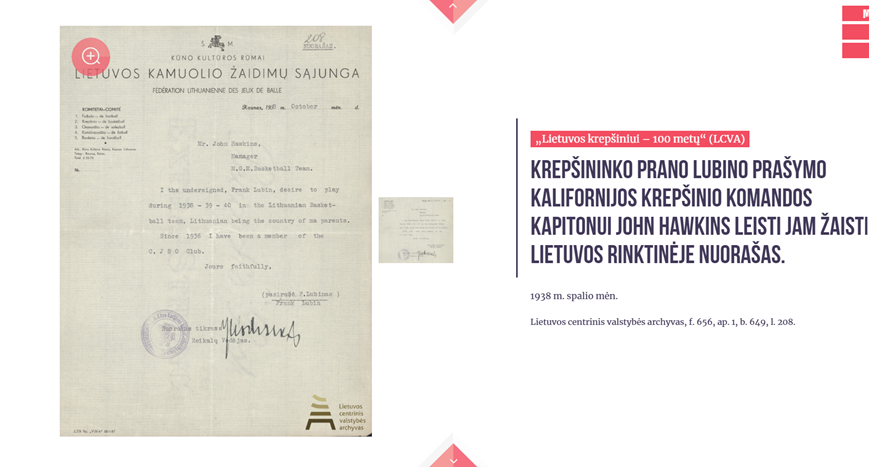 Š M
208
NUORAŠAS.
KŪNO KULTŪROS RŪMAI
LIETUVOS KAMUOLIO ŽAIDIMŲ SĄJUNGA
FÉDÉRATION LITHUANIENNE DES JEUX DE BALLE
KOMITETAI-COMITÉ
Kaunas, 193 m. October mėn. d.
Nr.
Mr. John Hawkins,
Manager
M.G.M.Basketball Team.
I the undersigned, Frank Lubin, desire to play
during 1938 - 39 - 40 in the Lithuanian Basket-
ball team, Lithuanian being the country of ma parents.
Since 1936 I have been a member of the
C. J S O Club.
Yours faithfully,
(pasirašė F.Lubinas )
Frank Lubin
Nuorašas tikras
Reikalų Vedėjas.
Lietuvos
centrinis
valstybės
archyvas
„Lietuvos krepšiniui – 100 metų“ (LCVA)
KREPŠININKO PRANO LUBINO PRAŠYMO
KALIFORNIJOS KREPŠINIO KOMANDOS
KAPITONUI JOHN HAWKINS LEISTI JAM ŽAISTI
LIETUVOS RINKTINĖJE NUORAŠAS.
1938 m. spalio mėn.
Lietuvos centrinis valstybės archyvas, f. 656, ap. 1, b. 649, l. 208.